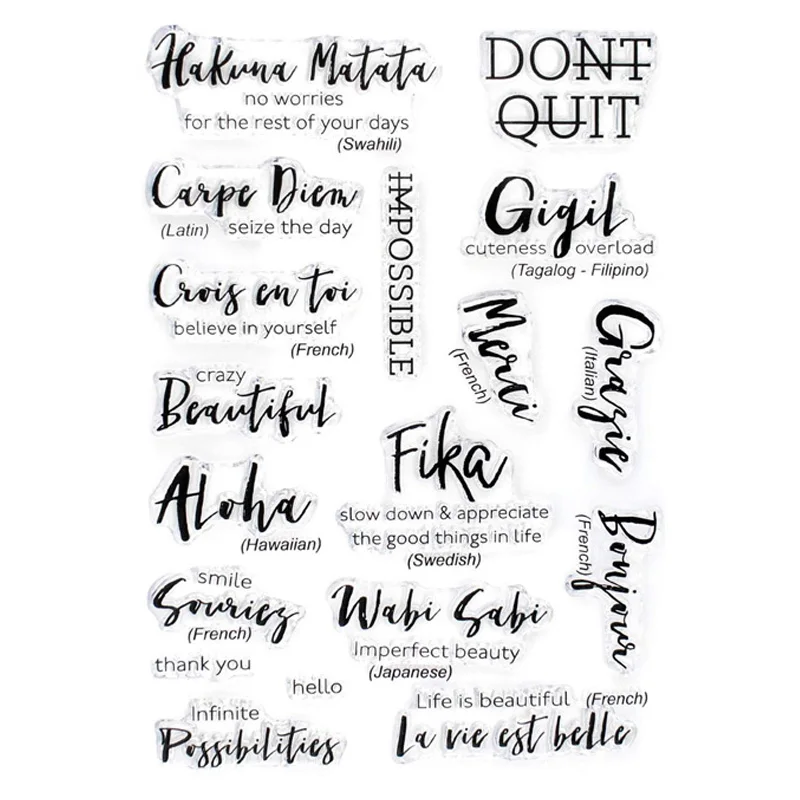 Hakuna Matata
no worries
for the rest of your days
(Swahili)
DONT
QUIT
Carpe Diem
(Latin) seize the day
IMPOSSIBLE
Gigil
cuteness overload
(Tagalog - Filipino)
Crois en toi
believe in yourself
(French)
Merci
(French)
Grazie
(Italian)
crazy
Beautiful
Fika
slow down & appreciate
the good things in life
(Swedish)
Aloha
(Hawaiian)
Bonjour
(French)
smile
Souriez
(French)
Wabi Sabi
Imperfect beauty
(Japanese)
thank you
hello
Life is beautiful (French)
La vie est belle
Infinite
Possibilities